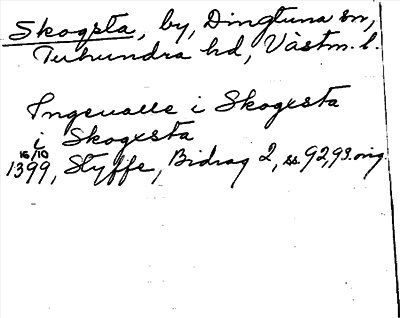 Skogsta, by, Dingtuna sn,
Tuhundra hd, Västm. l.
Ingeualle i Skogxsta
i Skogxsta
16/10
1399, Styffe, Bidrag 2, ss. 92, 93. orig.